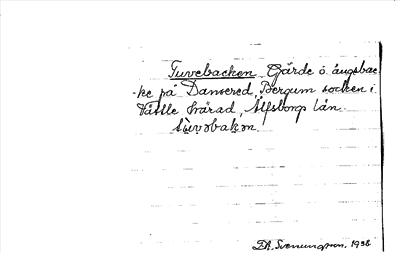 Tuvebacken Gärde o. ängsbac-
ke på Dansered, Bergum socken i
Vättle härad, Älfsborgs län.
tùvəbakən.
D.A. Svenungson. 1938